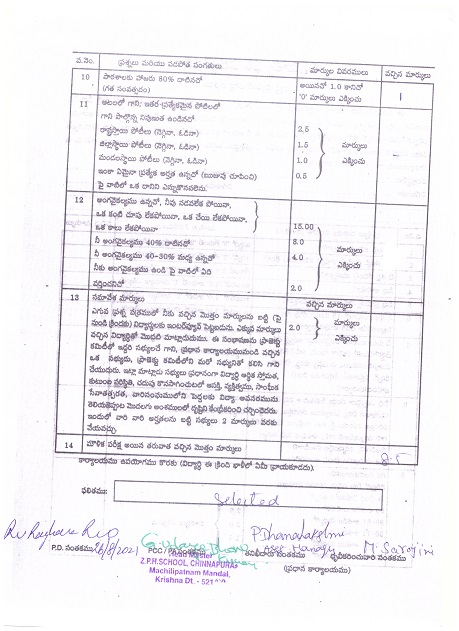 వ.నెం. ప్రశ్నలు మరియు సడపోత సంగతులు మార్కుల వివరములు వచ్చిన మార్కులు
10 పాఠశాలకు హాజరు 80% దాటినదో అయినచో 1.0 కానిచో 1
(గత సంవత్సరం) '0' మార్కులు ఎక్కించు
11 ఆటలలో గాని; ఇతర ప్రత్యేకమైన పోటీలలో
గాని పాల్గొన్న నిపుణుత ఉండినదో
రాష్ట్రస్థాయి పోటీలు (నెగ్గినా, ఓడినా) 2.5
జిల్లాస్థాయి పోటీలు (నెగ్గినా, ఓడినా) 1.5 మార్కులు
మండలస్థాయి పోటీలు (నెగ్గినా, ఓడినా) 1.0 ఎక్కించు
ఇంకా ఏమైనా ప్రత్యేక అర్హత ఉన్నదో (ఋజువు చూపించి) 0.5
పై వాటిలో ఒక దానిని ఎన్నుకొనవలెను.
12 అంగవైకల్యము ఉన్నదో, నీవు నడవలేక పోయినా,
ఒక కంటి చూపు లేకపోయినా, ఒక చేయి లేకపోయినా,
ఒక కాలు లేకపోయినా 15.00
నీ అంగవైకల్యము 40% దాటినదో 8.0 మార్కులు
నీ అంగవైకల్యము 40-30% మధ్య ఉన్నదో 4.0 ఎక్కించు
నీకు అంగవైకల్యము ఉండి పై వాటిలో ఏది
వర్తించనిచో 2.0
13 సమావేశ మార్కులు వచ్చిన మార్కులు
ఎగువ ప్రశ్న పత్రములో నీకు వచ్చిన మొత్తం మార్కులను బట్టి (పై
నుండి క్రిందకు) విద్యార్థులకు ఇంటర్వ్యూ పెట్టబడును. ఎక్కువ మార్కులు 2.0 మార్కులు
వచ్చిన విద్యార్థితో మొదట మాట్లాడుదుము. ఈ సంభాషణను ప్రాజెక్టు ఎక్కించు
కమిటీలో ఇద్దరి సభ్యులచే గాని, ప్రధాన కార్యాలయమునుండి వచ్చిన
ఒక సభ్యుడు, ప్రాజెక్టు కమిటీలోని మరో సభ్యునితో కలిసి గాని
చేయుదురు. ఇట్లా మాట్లాడు సభ్యులు ప్రధానంగా విద్యార్థి ఆర్థిక స్తోమత,
కుటుంబ పరిస్థితి, చదువు కొనసాగించుటలో ఆసక్తి, వ్యక్తిత్వము, సాంఘిక
ఇందులో వారి వారి అర్హతలను బట్టి సభ్యులు 2 మార్కులు వరకు
వేయవచ్చు.
14 మౌళిక పరీక్ష అయిన తరువాత వచ్చిన మొత్తం మార్కులు 8.5
కార్యాలయము ఉపయోగము కొరకు (విద్యార్థి ఈ క్రింది ఖాళీలో ఏమీ వ్రాయకూడదు).
ఫలితము: Selected
P.Dhanalakshmi
P.D. సంతకము 16/8/2021 PCC / PA సంతకము M. Sarojini
Head Master (ప్రధాన కార్యాలయము)
Z.P.H.SCHOOL, CHINNAPURAM
Machilipatnam Mandal,
Krishna Dt. - 521